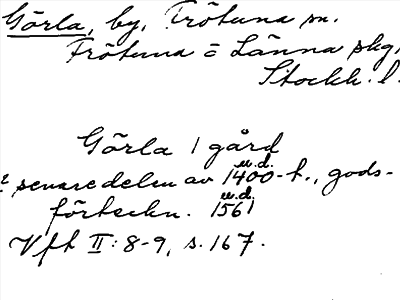 Görla, by, Frötuna sn.
Frötuna o Länna skg,
Stockh. l.
Görla 1 gård
u.d.
senare delen av 1400-t., gods-
u.d.
förteckn. 1561
Vfh II: 8-9, s. 167.